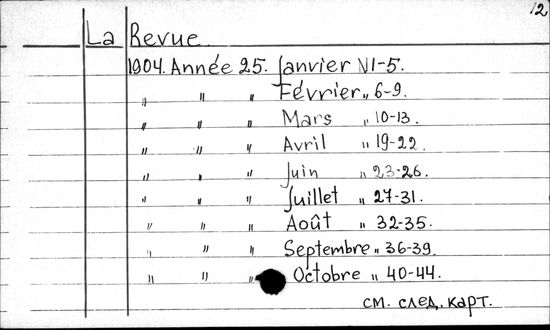 12
La Revue
1904. Année 25. Janvier N1-5.
„ „ „ Février „ 6-9.
„ „ „ Mars „ 10-13.
„ „ „ Avril „ 19-22.
„ „ „ Juin „ 23-26.
„ „ „ Juillet „ 27-31.
„ „ „ Août „ 32-35.
„ „ „ Septembre „ 36-39.
„ „ „ Octobre „ 40-44.
см. след. карт.